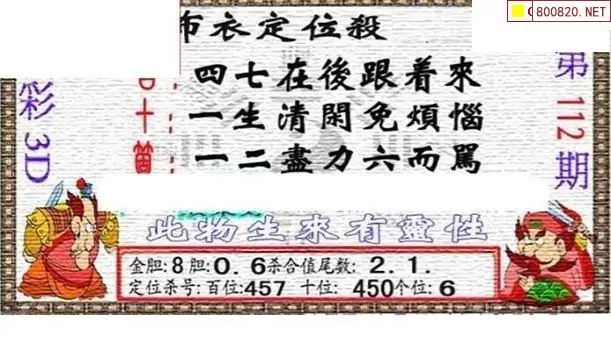 800820.NET
布衣定位殺
四七在後跟着來
一生清閑免煩惱
一二盡力六而罵
彩3D
第112期
此物生來有靈性
金胆:8胆:0.6杀合值尾数:2.1.
定位杀号:百位:457 十位:450个位:6